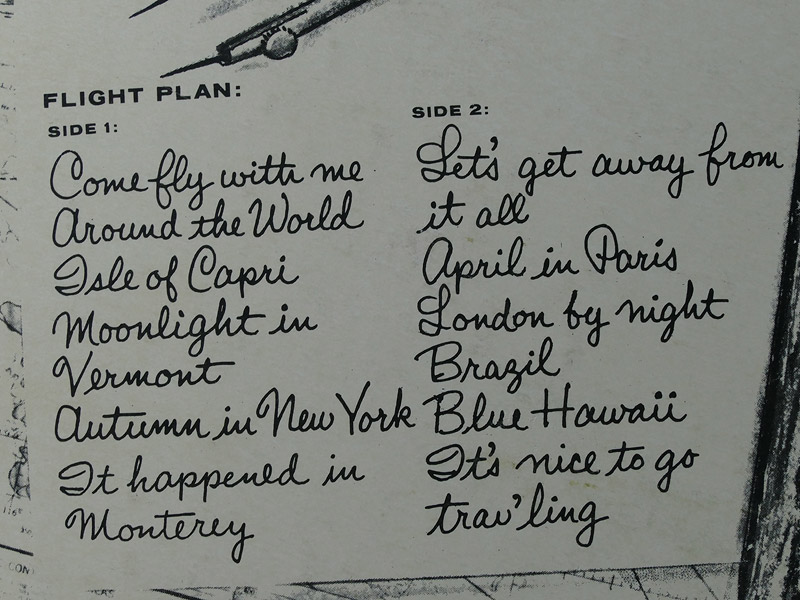 FLIGHT PLAN:
SIDE 1:
Come fly with me
Around the World
Isle of Capri
Moonlight in
Vermont
Autumn in New York
It happened in
Monterey
SIDE 2:
Let's get away from
it all
April in Paris
London by night
Brazil
Blue Hawaii
It's nice to go
trav'ling